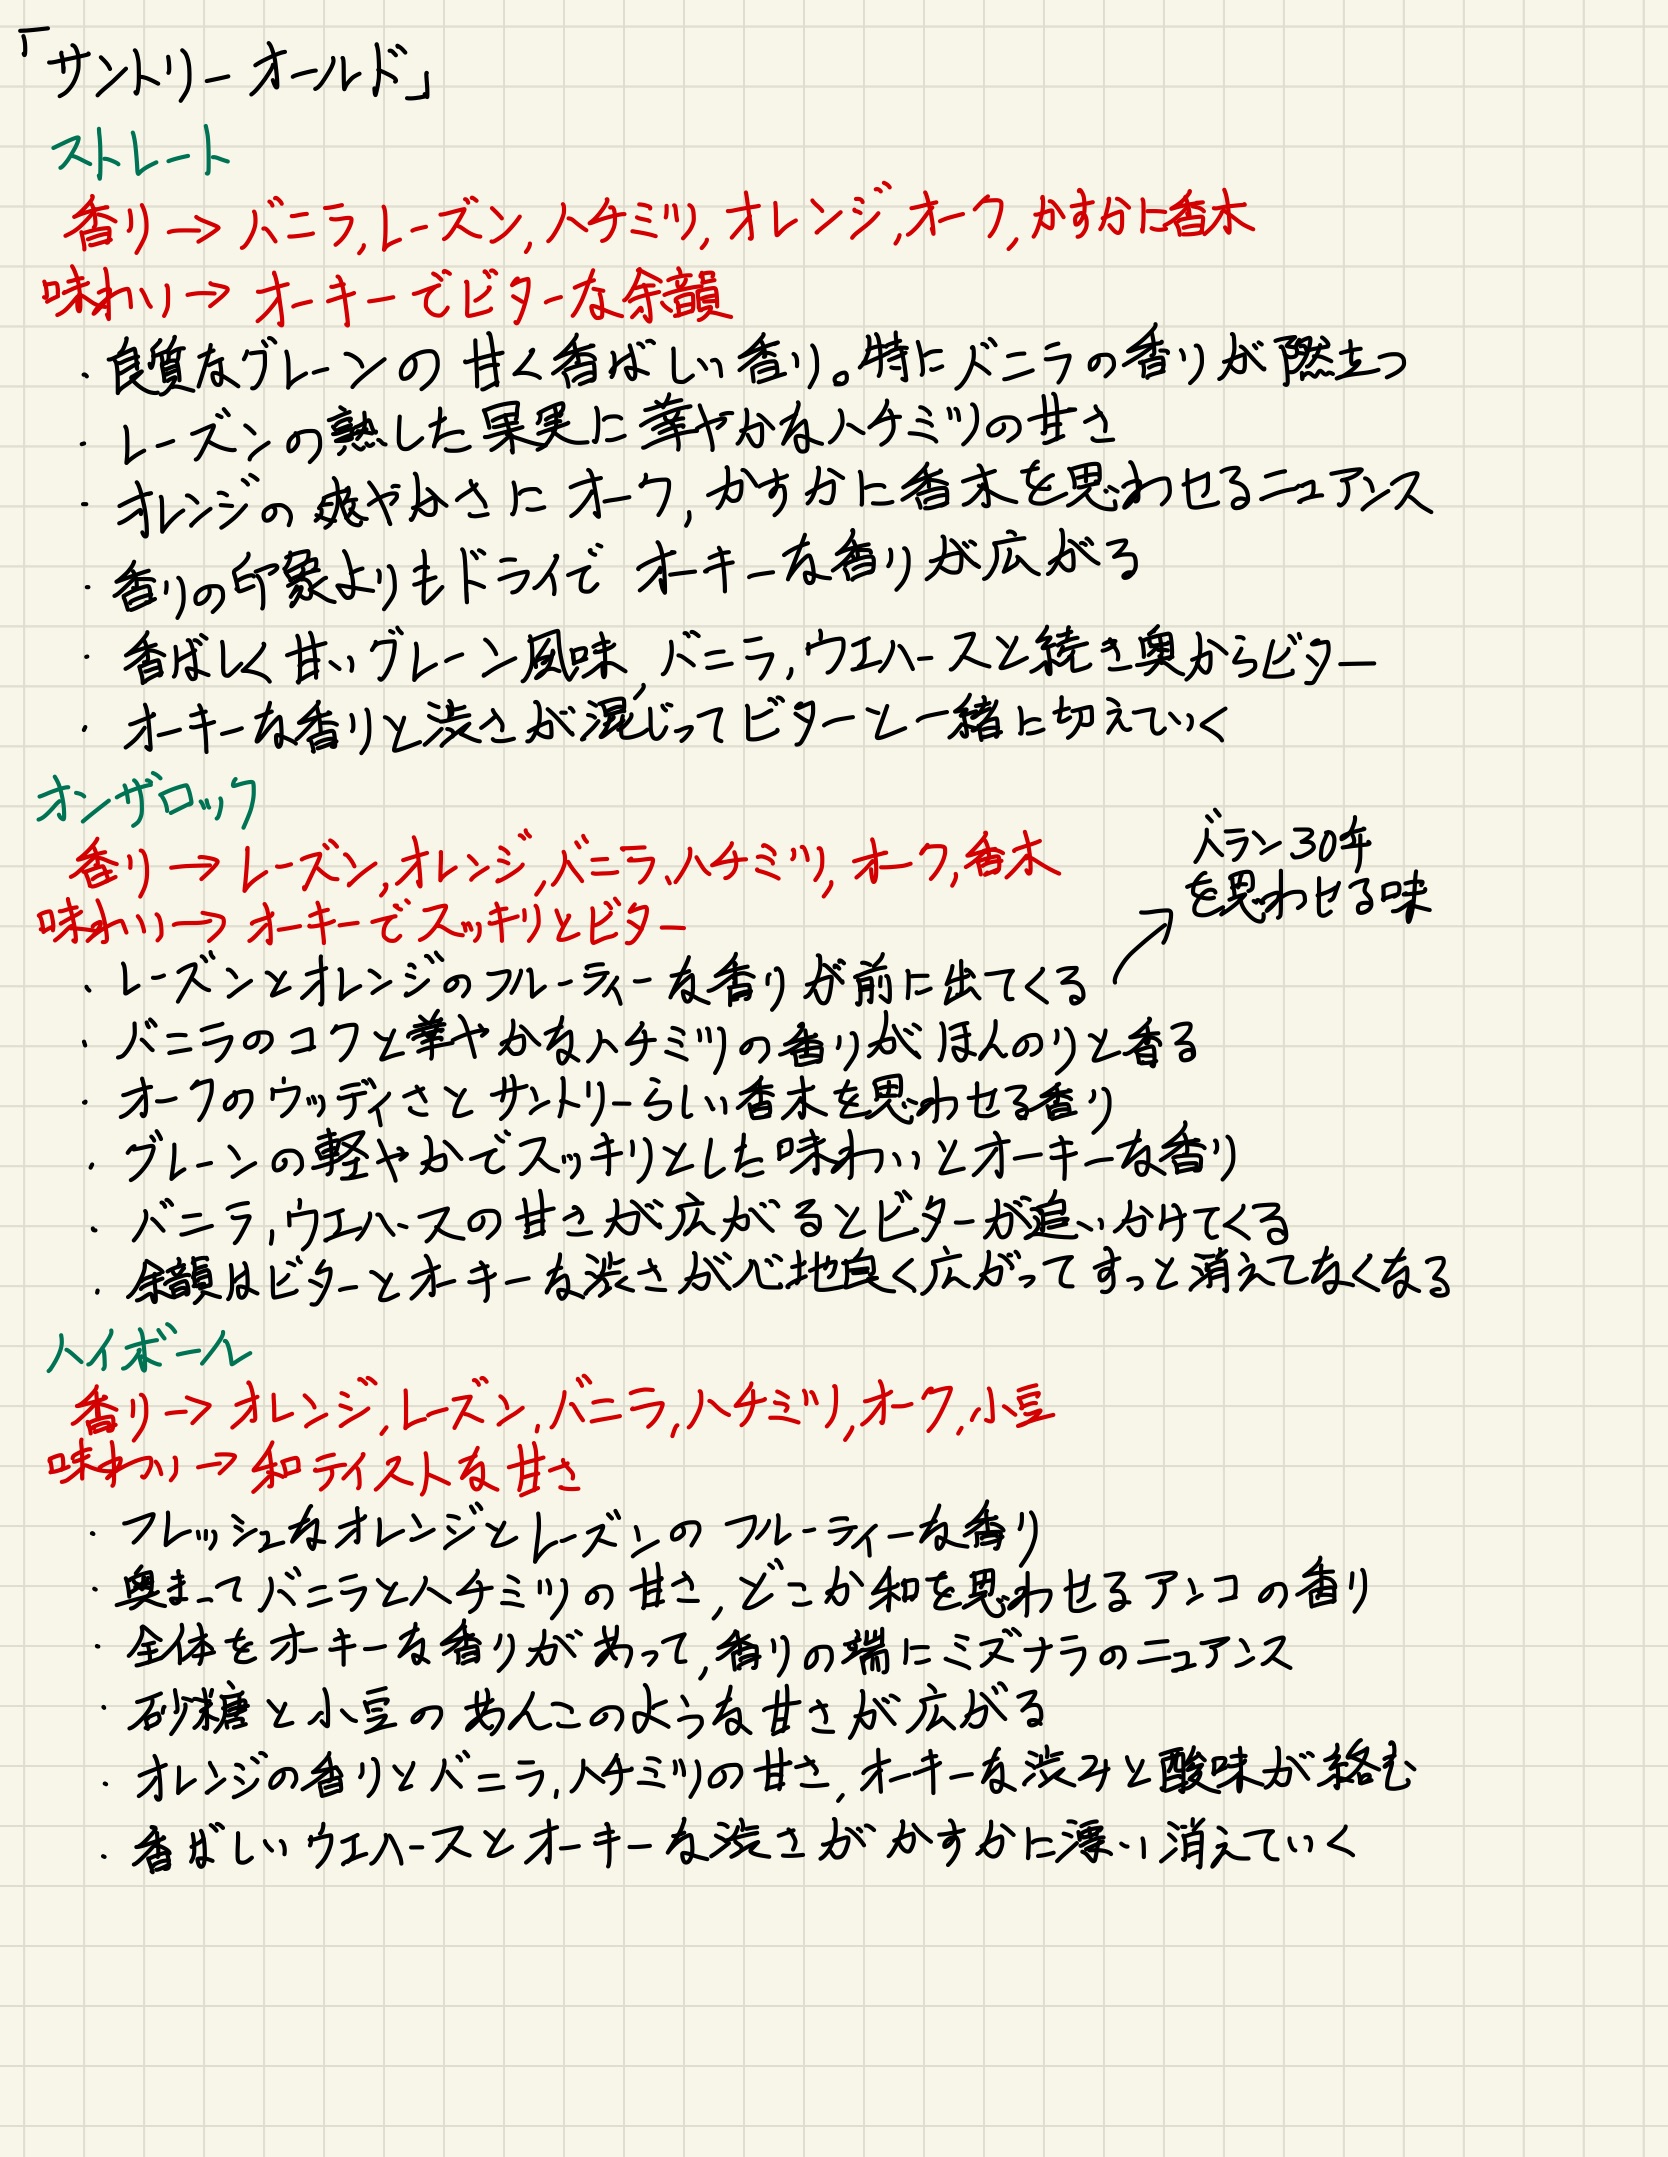 「サントリーオールド」
ストレート
香り→バニラ,レーズン,ハチミツ,オレンジ,オーク,かすかに香木
味わい→オーキーでビターな余韻
・良質なグレーンの甘く香ばしい香り。特にバニラの香りが際立つ
・レーズンの熟した果実に華やかなハチミツの甘さ
・オレンジの爽やかさにオーク,かすかに香木を思わせるニュアンス
・香りの印象よりもドライでオーキーな香りが広がる
・香ばしく甘いグレーン風味,バニラ,ウエハースと続き奥からビター
・オーキーな香りと渋さが混じってビターと一緒に切えていく
オンザロック
香り→レーズン,オレンジ,バニラ,ハチミツ,オーク,香木
味わい→オーキーでスッキリとビター
バラン30年
を思わせる味
・レーズンとオレンジのフルーティーな香りが前に出てくる
・バニラのコクと華やかなハチミツの香りがほんのりと香る
・オークのウッディさとサントリーらしい香木を思わせる香り
・グレーンの軽やかでスッキリとした味わいとオーキーな香り
・バニラ,ウエハースの甘さが広がるとビターが追いかけてくる
・余韻はビターとオーキーな渋さが心地良く広がってすっと消えてなくなる
ハイボール
香り→オレンジ,レーズン,バニラ,ハチミツ,オーク,小豆
味わい→和テイストな甘さ
・フレッシュなオレンジとレーズンのフルーティーな香り
・奥まってバニラとハチミツの甘さ,どこか和を思わせるアンコの香り
・全体をオーキーな香りがあって,香りの端にミズナラのニュアンス
・砂糖と小豆のあんこのような甘さが広がる
・オレンジの香りとバニラ,ハチミツの甘さ,オーキーな渋みと酸味が絡む
・香ばしいウエハースとオーキーな渋さがかすかに漂い消えていく